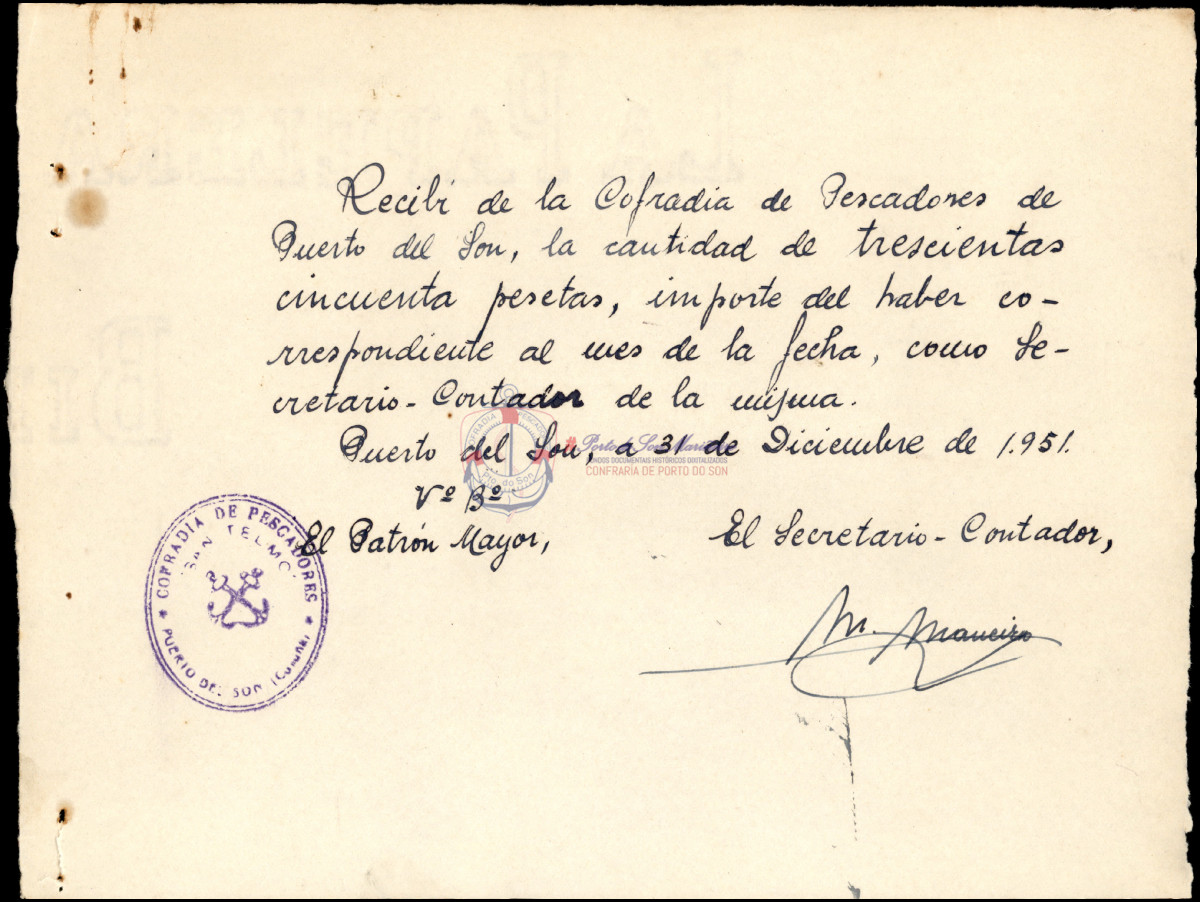 Recibi de la Cofradia de Pescadores de
Puerto del Son, la cantidad de trescientas
cincuenta pesetas, importe del haber co-
rrespondiente al mes de la fecha, como Se-
cretario-Contador de la misma.
Puerto del Son, a 31 de Diciembre de 1.951.
Vº Bº
El Patrón Mayor,
El Secretario-Contador,
M. Maneiro
COFRADIA DE PESCADORES
SAN TELMO
PUERTO DEL SON (Coruña)
COFRADIA PESCADORES
Pto. do Son
Porto do Son
FONDOS DOCUMENTAIS HISTÓRICOS DIXITALIZADOS
CONFRARÍA DE PORTO DO SON